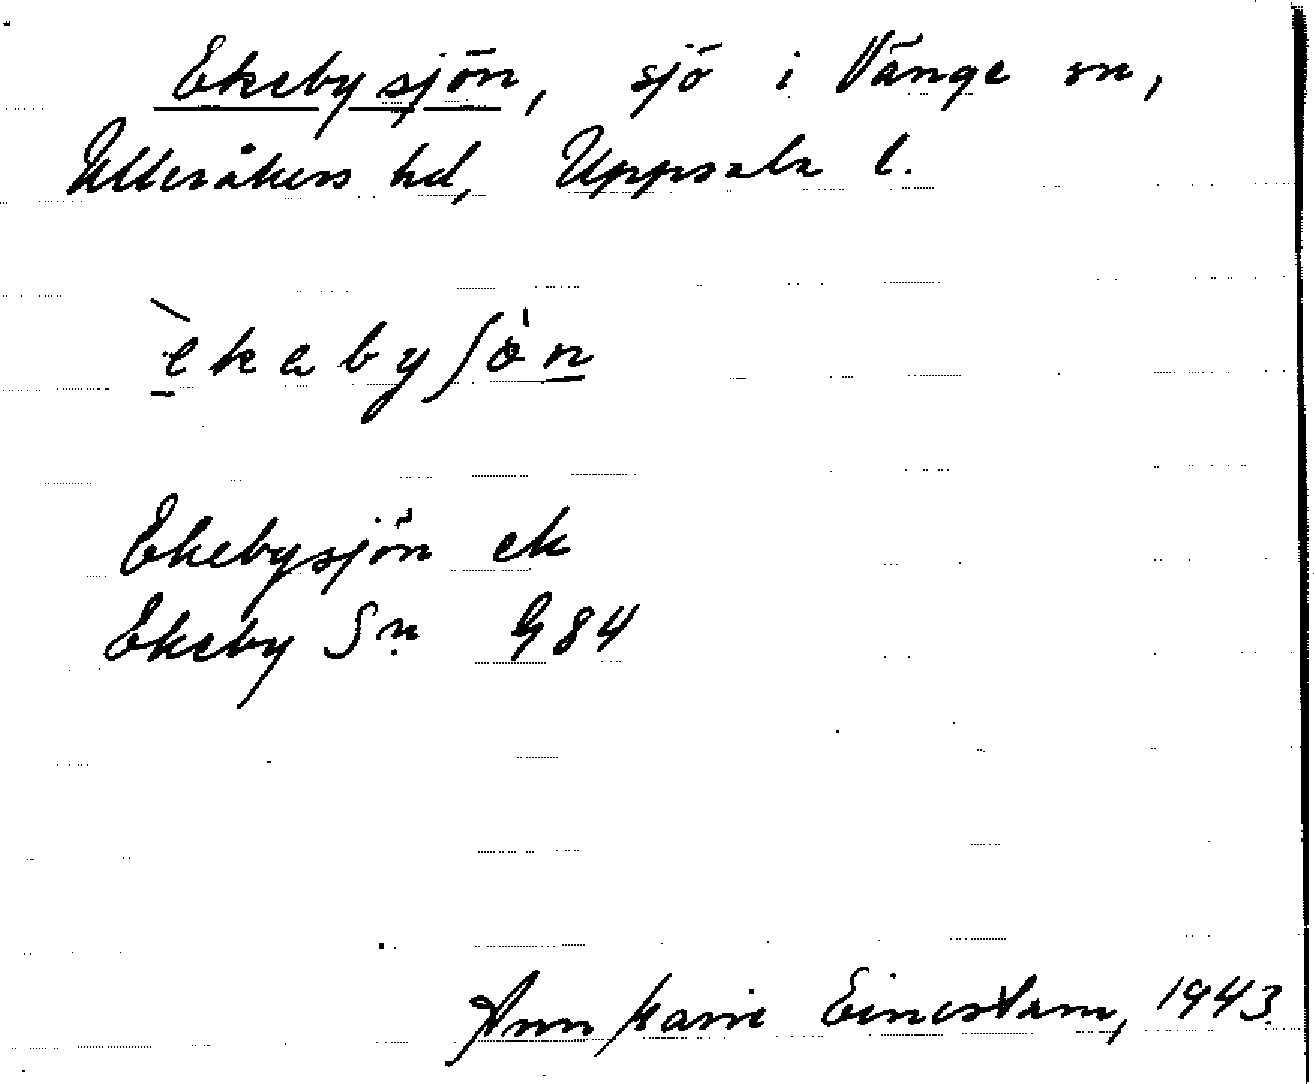 Ekebysjön, sjö i Vänge sn,
Ulleråkers hd, Uppsala l.
èkabyʃö̀n
Ekebysjön ek
Ekeby Sn G84
Ann Marie 1943